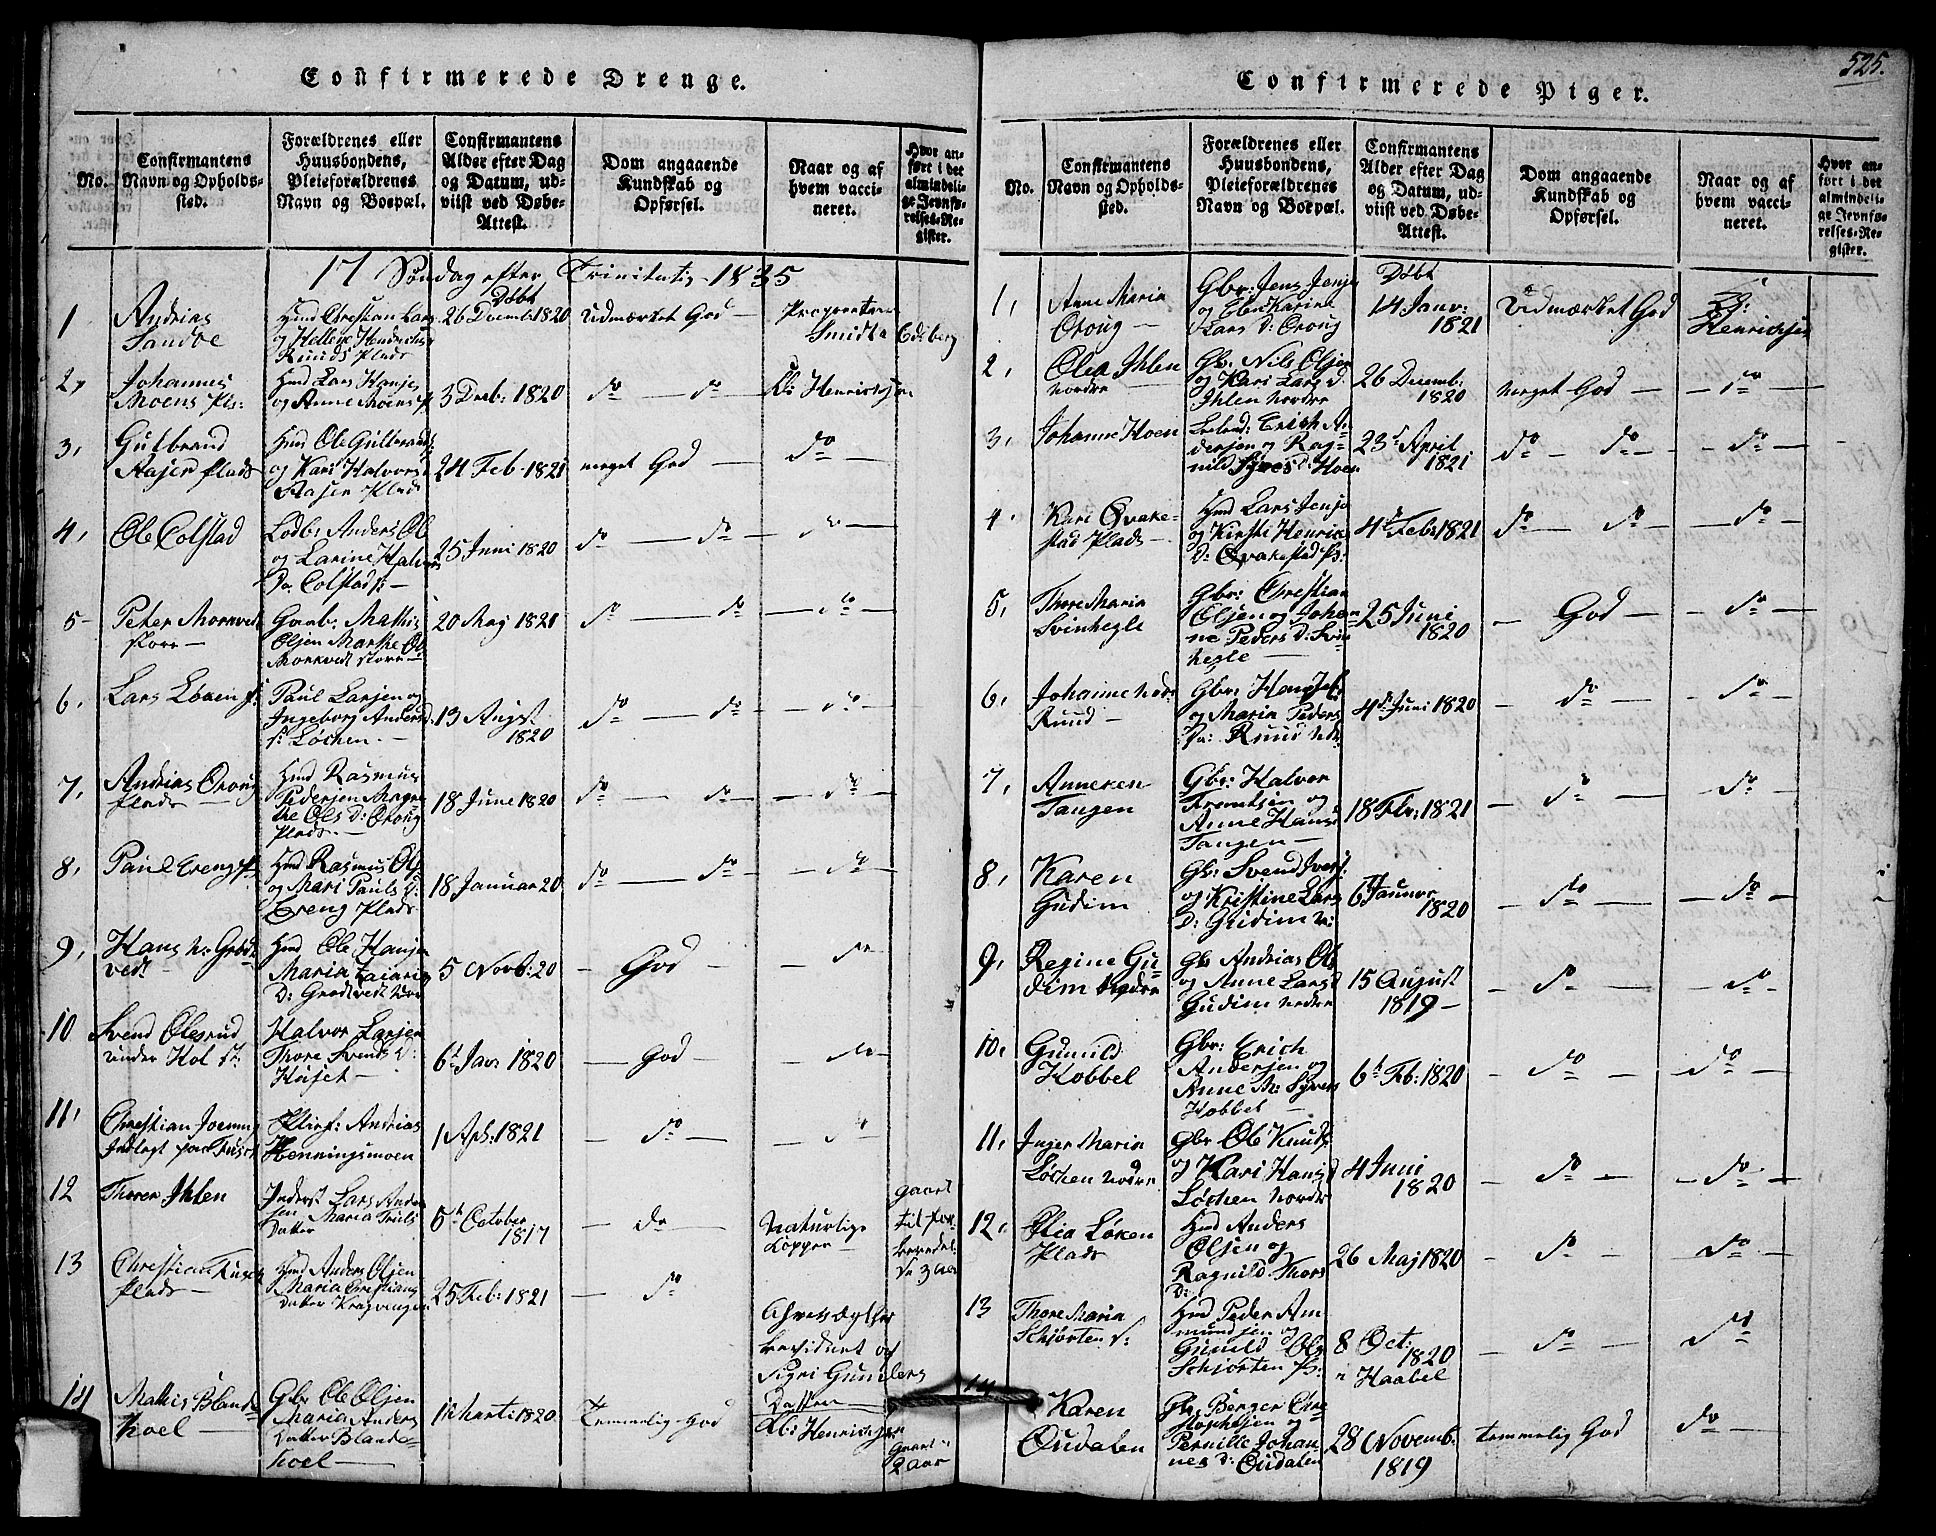 Confirmerede Drenge.
No.
Confirmantens
Navn og Opholds-
sted.
Forældrenes eller
Huusbondens,
Pleieforældrenes
Navn og Boepæl.
Confirmantens
Alder efter Dag
og Datum, ud-
viist ved Døbe-
Attest.
Dom angaaende
Kundskab og
Opførsel.
Naar og af
hvem vacci-
neret.
Hvor an-
ført i det
almindeli-
ge Jevnfø-
relses-Re-
gister.
17 Søndag efter Trinitatis 1835
1
Andrias
Sandbe
og Hellene
Ruuds Plads
Døbt
26 Decemb: 1820
Udmærket God
Smidt
2,
Johannes
Moens Pls:
Hmd Lars Hansen
og Anne Moens
3 Decb: 1820
do do
Kl: Henrichsen
3,
Gulbrand
Aasen Plads
Hmd Ole Gulbrands
og Kari Halvors
Aasen Plads
24 Feb 1821
meget God
do
4,
Ole Colstad
Anders Ols
og Larine Halvors
Da: Colstads
25 Juni 1820
do do
do
5
Peter Morkvedt
store
Mathis
Olsen Marthe Ols
Morkvedt store
20 May 1821
do do
do
6,
Lars Løken
Paul Larsen og
Ingeborg Anders d.
Løchen
13 August
1820
do do
do
7,
Andrias Oroug
Plads
Hmd Rasmus
Pedersen
Ols D: Oroug
Plads
18 June 1820
do do
do
8,
Paul Creng
Hmd Rasmus Ols
og Mari Pauls D:
Creng Plads
18 Januar 20
do do
do
9,
Hans n: Grødt
vedt
Hmd Ole Hansen
Maria
D: Grødtvedt
5 Novb: 20
God
do
10
Svend Olesrud
under Hol
Halvor Larsen
Thore Svends D:
Huset
6t Jan: 1820
God
do
11,
Christian
Pleief: Andrias
Henningsmoen
1 Apl: 1821
do
do
12
Thorer Ihlen
Inderst Lars Anders
sen Maria Truls
Datter
5t October
1817
do
Naturlige
Kopper
13
Christian
Plads
Hmd Anders Olsen
Maria Christians
Datter
25 Feb: 1821
do
og
Sigri Gunders
Datter
14
Mathis Blande
hoel
Gbr Ole Olsen
Maria Anders
Datter Blande-
hoel
1820
Temmelig God
Kl: Henrichsen
2 Aar
525.
Confirmerede Piger.
No.
Confirmantens
Navn og Opholds-
sted.
Forældrenes eller
Huusbondens,
Pleieforældrenes
Navn og Boepæl.
Confirmantens
Alder efter Dag
og Datum, ud-
viist ved Døbe-
Attest.
Dom angaaende
Kundskab og
Opførsel.
Naar og af
hvem vacci-
neret.
Hvor an-
ført i det
almindeli-
ge Jevnfø-
relses-Re-
gister.
1,
Anne Maria
Oroug
Gbr: Jens Jensen
og Ellen Karine
Lars D: Oroug
Døbt
14 Janv:
1821
Udmærket God
Henrichsen
2,
Olea Ihlen
nordre
Gbr: Nils Olsen
og Kari Lars D:
Ihlen nordre
26 Decemb:
1820
meget God
do
3,
Johanne Hoen
Erich An
dersen og Rag-
nild Syvers D: Hoen
23d April
1821
do do
do
4
Kari Qvake-
stad Plads
Hmd Lars Jensen
og Kirsti Henrics
D: Qvakestad Ps:
4d Feb: 1821
do do
do
5,
Thore Maria
Svinhegle
Gbr: Christian
Olsen og Johan
ne Peders D: Svin
hegle
25 Juni
1820
God
do
6,
Johanne Nedr
Ruud
Gbr:
og Maria Peders
Da: Ruud Nedr
4d Juni 1820
do
do
7,
Anneken
Tangen
Gbr: Halvor
og
Anne Hans
Tangen
18 Feb: 1821
do
do
8,
Karen
Gudim
Gbr: Svend Ivers:
og Kristine Lars
D: Gudim N:
6t Januar
1820
do
do
9,
Regine Gu
dim nedre
Gbr Andrias Ols
og Anne Lars d
Gudim nedre
15 August
1819
do
do
10,
Gunild
Kobbel
Gbr: Erich
Andersen og
Anne M: Syvers
Hobbel
6t Feb: 1820
do
do
11,
Inger Maria
Løchen nordre
Gbr Ole Knuds
og Kari Hans d
Løchen nordre
4 Juni
1820
do
do
12,
Olia Løken
Plads
Hmd Anders
Olsen og
Ragnild Thors
D:
26 Maj 1820
do
do
13
Thore Maria
Schjorten
Hmd Peder Am
mundsen og
Gunild Ols
Schjorten Ps:
8 Oct:
1820
i Haabel
do
do
14
Karen
Oudalen
Gbr Berger Chri-
stophsen og
Pernille Johan-
nes D: Oudalen
28 Novemb:
1819
temmelig God
do